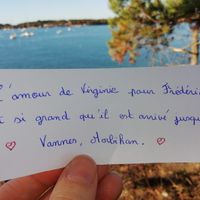 L'amour de Virginie pour Frédéric
t si grand qu'il est arrivé jusqu
Vannes, Morbihan.